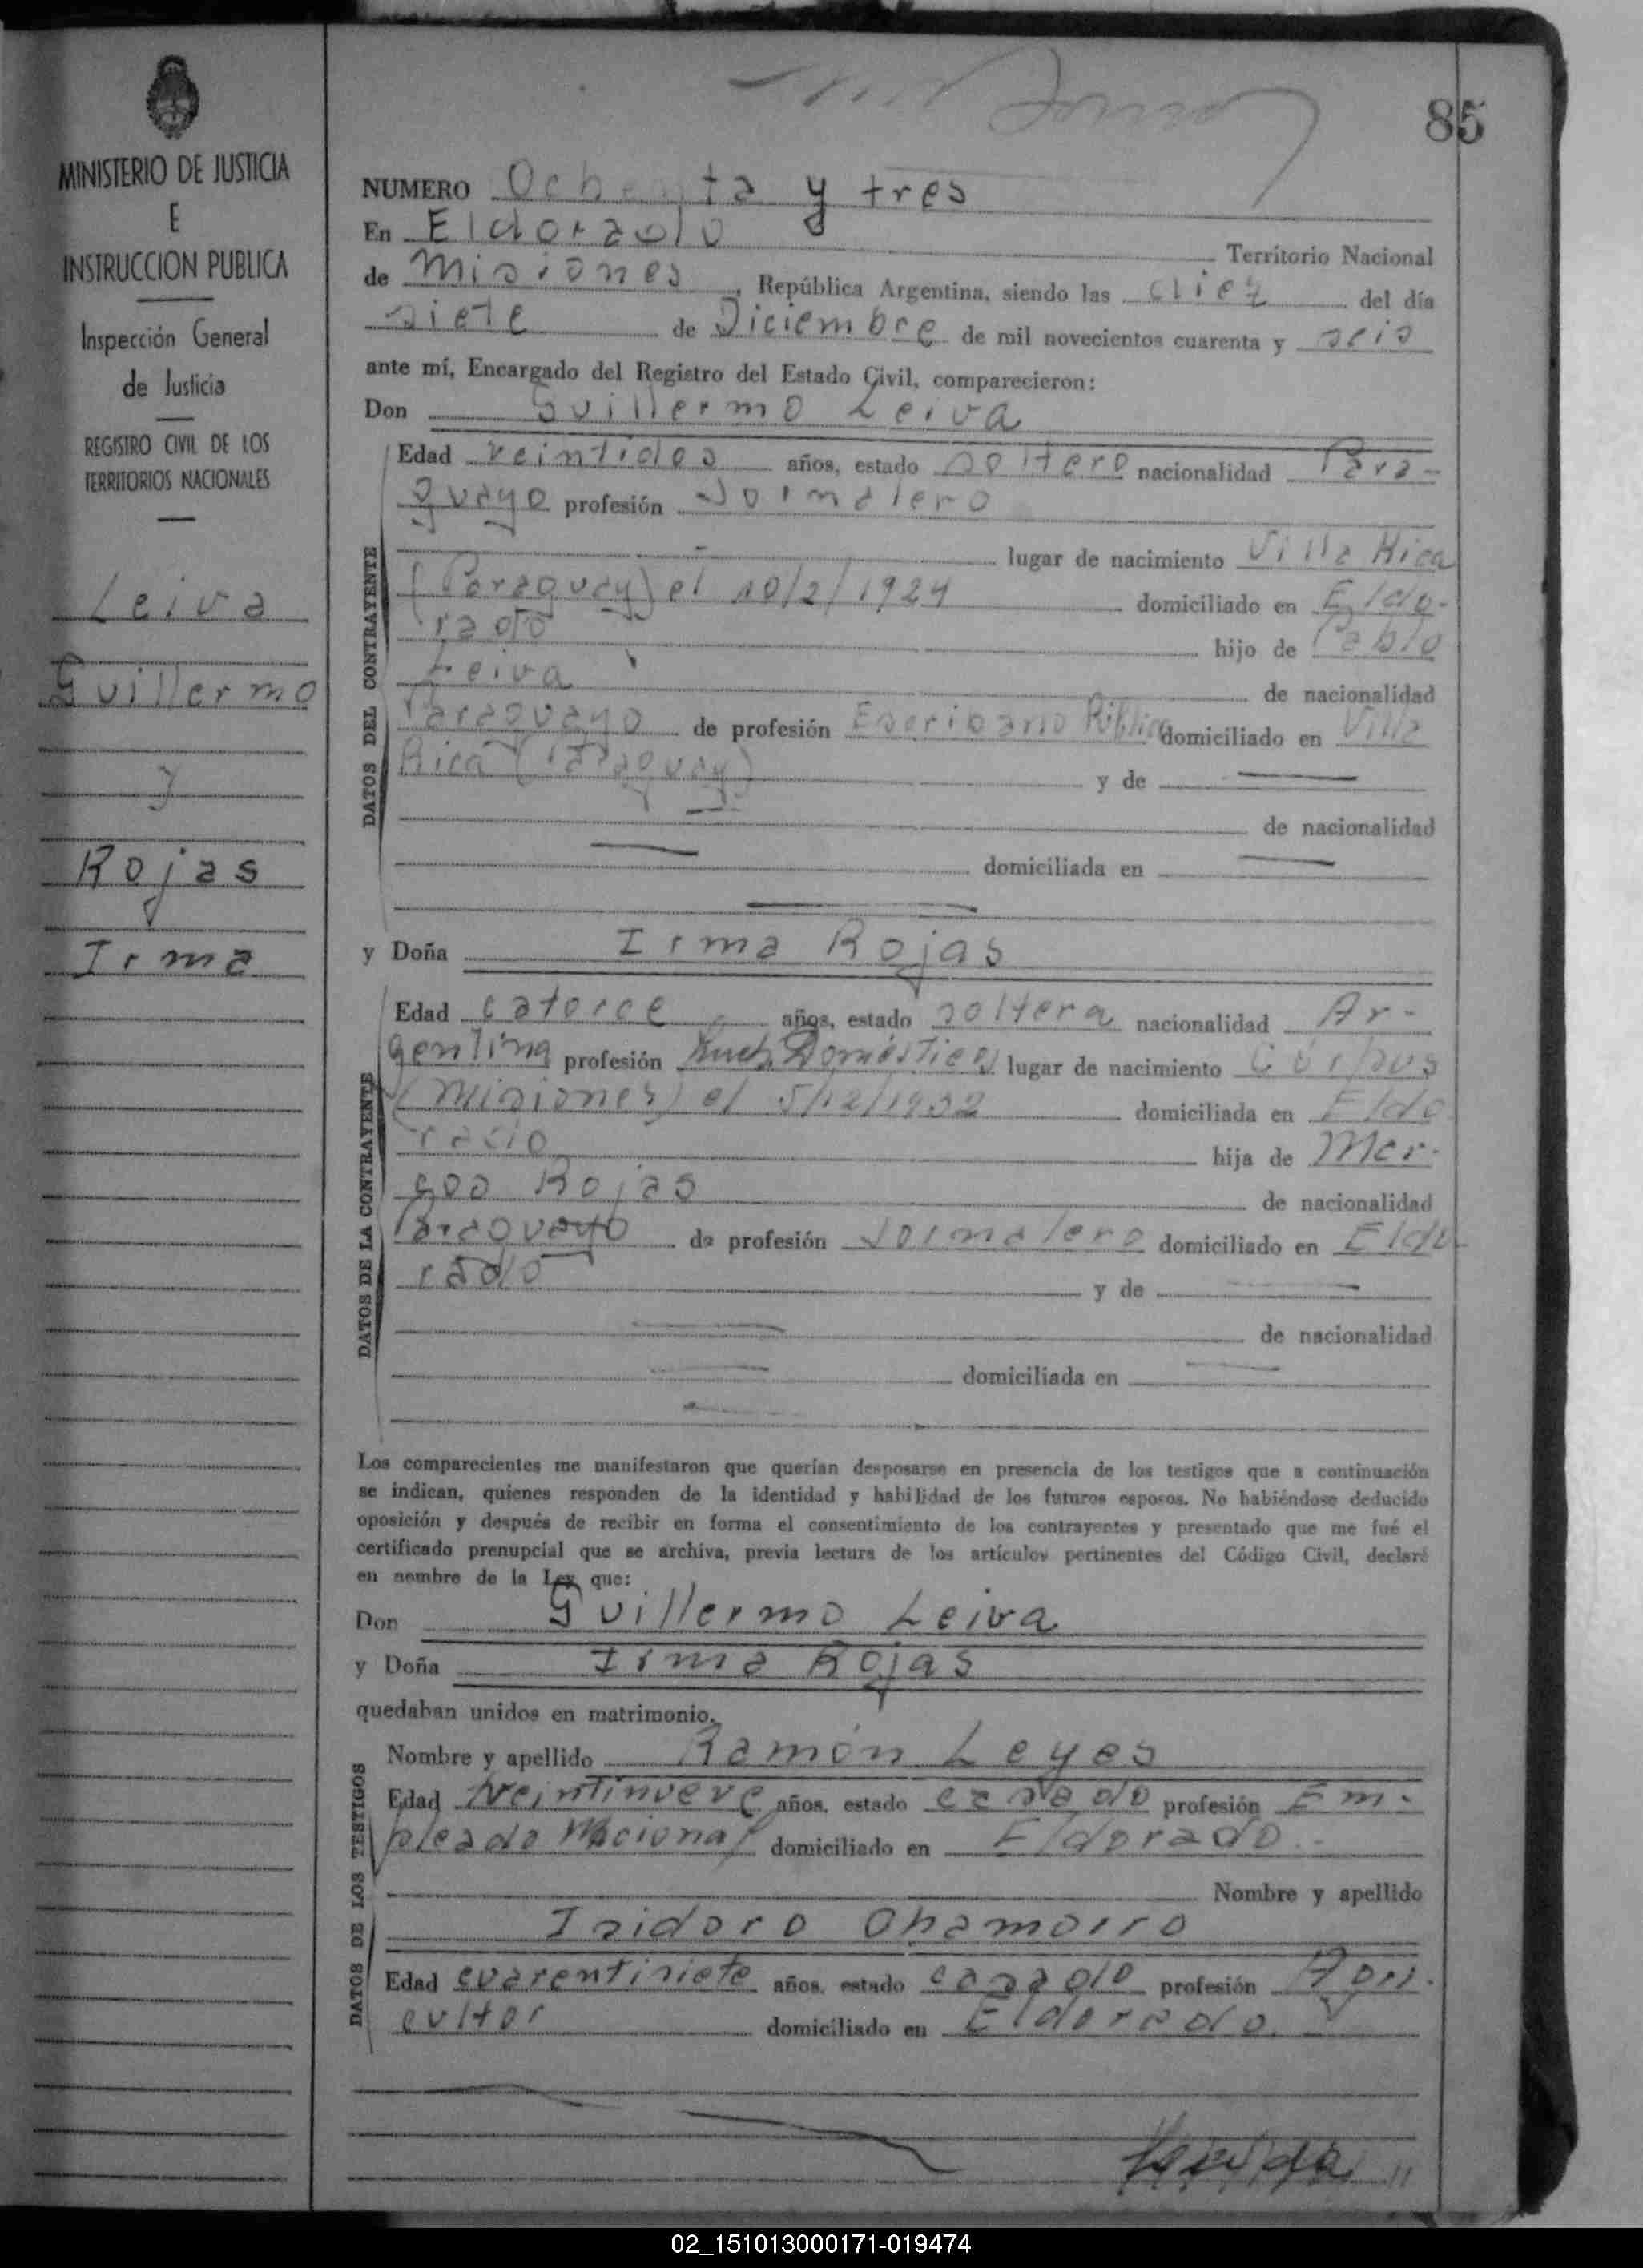 85
MINISTERIO DE JUSTICIA
E
INSTRUCCION PUBLICA
Inspección General
de Justicia
REGISTRO CIVIL DE LOS
TERRITORIOS NACIONALES
Leiva
Guillermo
y
Rojas
Irma
NUMERO Ochenta y tres
En Eldorado Territorio Nacional
de Misiones, República Argentina, siendo las diez del día
siete de Diciembre de mil novecientos cuarenta y seis
ante mí, Encargado del Registro del Estado Civil, comparecieron:
Don Guillermo Leiva
DATOS DEL CONTRAYENTE
Edad veintidos años, estado soltero nacionalidad Para-
guayo profesión Jornalero
lugar de nacimiento Villa Rica
(Paraguay) el 10/2/1924 domiciliado en Eldo-
rado hijo de Pablo
Leiva de nacionalidad
Paraguayo de profesión Escribano Público domiciliado en Villa
Rica (Paraguay) y de
de nacionalidad
domiciliada en
y Doña Irma Rojas
DATOS DE LA CONTRAYENTE
Edad catorce años, estado soltera nacionalidad Ar-
gentina profesión Domésticos lugar de nacimiento Córpus
(Misiones) el 5/12/1932 domiciliada en Eldo
rado hija de Mar-
cos Rojas de nacionalidad
Paraguayo de profesión Jornalero domiciliado en Eldo-
rado y de
de nacionalidad
domiciliada en
Los comparecientes me manifestaron que querían desposarse en presencia de los testigos que a continuación
se indican, quienes responden de la identidad y habilidad de los futuros esposos. No habiéndose deducido
oposición y después de recibir en forma el consentimiento de los contrayentes y presentado que me fué el
certificado prenupcial que se archiva, previa lectura de los artículos pertinentes del Código Civil, declaré
en nombre de la Ley que:
Don Guillermo Leiva
y Doña Irma Rojas
quedaban unidos en matrimonio.
DATOS DE LOS TESTIGOS
Nombre y apellido Ramón Leyes
Edad veintinueve años, estado casado profesión Em-
pleado Nacional domiciliado en Eldorado.-
Nombre y apellido
Isidoro Chamorro
Edad cuarentisiete años, estado casado profesión Agri-
cultor domiciliado en Eldorado.
02_151013000171-019474